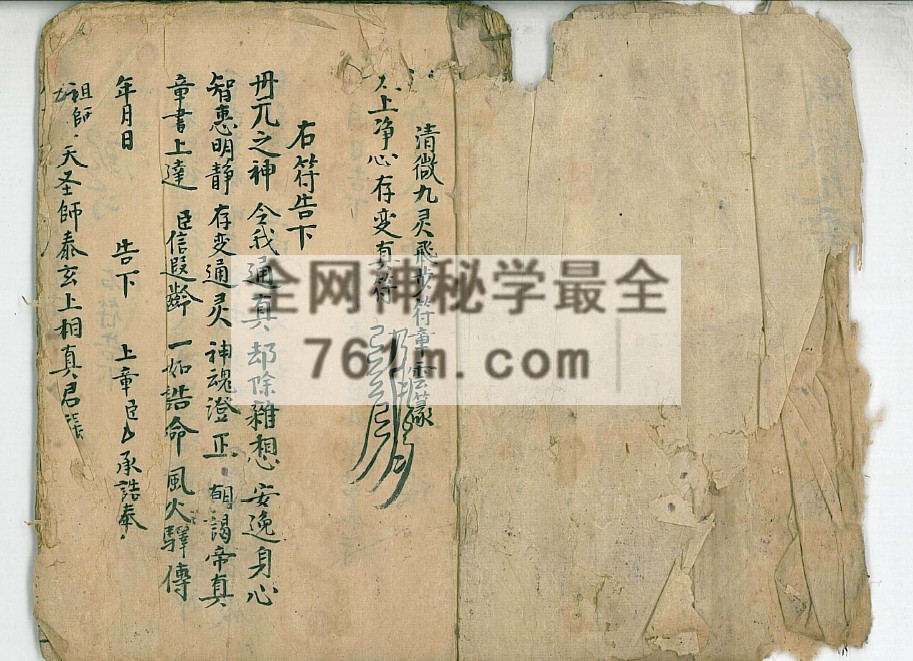 清微九灵飛步符章雲篆
太上净心存变真符
右符告下
丹元之神 令我通真 却除雜想 安逸身心
智惠明静 存变通灵 神魂澄正 朝謁帝真
章書上達 臣信遐齡 一如誥命 風火驛傳
年月日 告下 上章臣 承誥奉
祖師 天圣師泰玄上相真君張
全网神秘学最全
767m.com